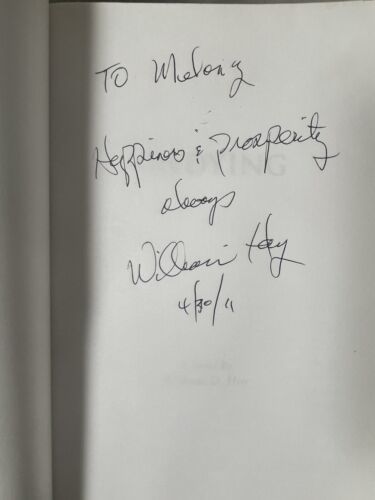 To Melony
Happiness & prosperity
always
William Hay
4/30/11